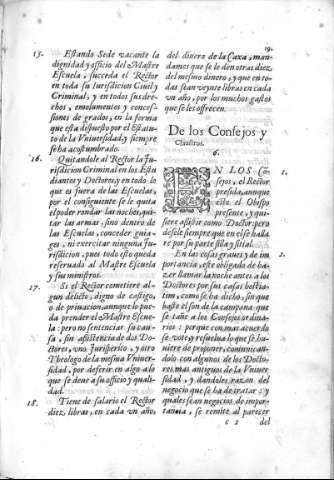 19.
15. Estando Sede vacante la
dignidad y officio del Mastre
Escuela, suceda el Rector
en toda su Iurisdicion Ciuil y
Criminal, y en todos sus dre-
chos, emolumentos y conces-
siones de grados, en la forma
que esta dispuesto por el Estatu-
to de la Vniuersidad, y siempre
se ha acostumbrado.
16. Quitandole al Rector la Ju-
risdicion Criminal en los Estu
diantes y Doctores, y en todo lo
que es fuera de las Escuelas,
por el consiguiente se le quita
el poder rondar las noches, qui-
tar las armas, sino dentro de
las Escuelas, conceder guia-
ges, ni exercitar ninguna Ju-
risdicion, pues todo esto queda
reseruado al Mastre Escuela
y sus ministros.
17. Si el Rector cometiere al-
gun delicto, digno de castigo,
o de priuacion, aunque lo pue-
da prender el Mastre Escue-
la: pero no sentenciar su cau-
sa, sin assistencia de dos Do-
ctores, vno Jurisperito, y otro
Theologo de la mesma Vniuer-
sidad, por deferir en algo a lo
que se deue a su officio y quali-
dad.
18. Tiene de salario el Rector
diez, libras, en cada vn año,
del dinero de la Caxa, man-
damos que se le den otras diez,
del mesmo dinero, y que en to-
das sean veynte libras en cada
vn año, por los muchos gastos
que se les offrecen.
De los Consejos y
Claustros.
6.
EN LOS Cō 1.
sejos, el Rector
presida, aunque
este el Obispo
presente, y qui-
ere assistir como Doctor, pero
desele siempre que en el se halla
re por su parte silla y sitial.
En las cosas graues y de im 2.
portancia, este obligado de ha-
zer llamar la noche antes a los
Doctores por sus casas bestia-
tim, como se ha dicho, sin que
baste el son de la campana que
se tañe a los Consejos ordina-
rios: porque con mas acuerdo
se vote y resuelua lo que se hu-
uiere de proponer, comunicād-
olo con algunos de los Docto-
res mas antiguos de la Vniuer
sidad, y dandoles razon del
negocio que se ha de tratar: y
quales sean negocios de impor-
tancia, se remite al parecer
c 2 del